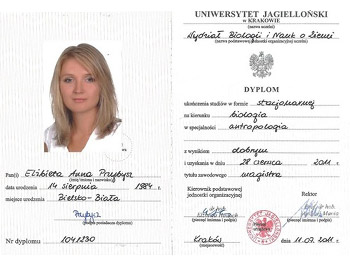 Pan(i) Elżbieta Anna Przybysz
(imię/imiona i nazwisko)
data urodzenia 14 sierpnia 1984 r.
miejsce urodzenia Bielsko-Biała
Przybysz
(podpis posiadacza dyplomu)
Nr dyplomu 1041230
UNIWERSYTET JAGIELLOŃSKI
w KRAKOWIE
(nazwa uczelni)
Wydział Biologii i Nauk o Ziemi
(nazwa podstawowej jednostki organizacyjnej uczelni)
DYPLOM
ukończenia studiów w formie stacjonarnej
na kierunku biologia
w specjalności antropologia
z wynikiem dobrym
i uzyskania w dniu 28 czerwca 2011 r.
tytułu zawodowego magistra
Kierownik podstawowej
jednostki organizacyjnej
Rektor
(pieczątka i podpis)
(pieczątka i podpis)
Kraków dnia 11.09.2011